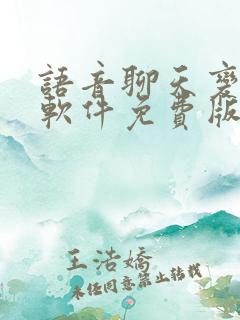 語音聊天褒
軟件免費版
王浩嬌
未經同意禁止轉載